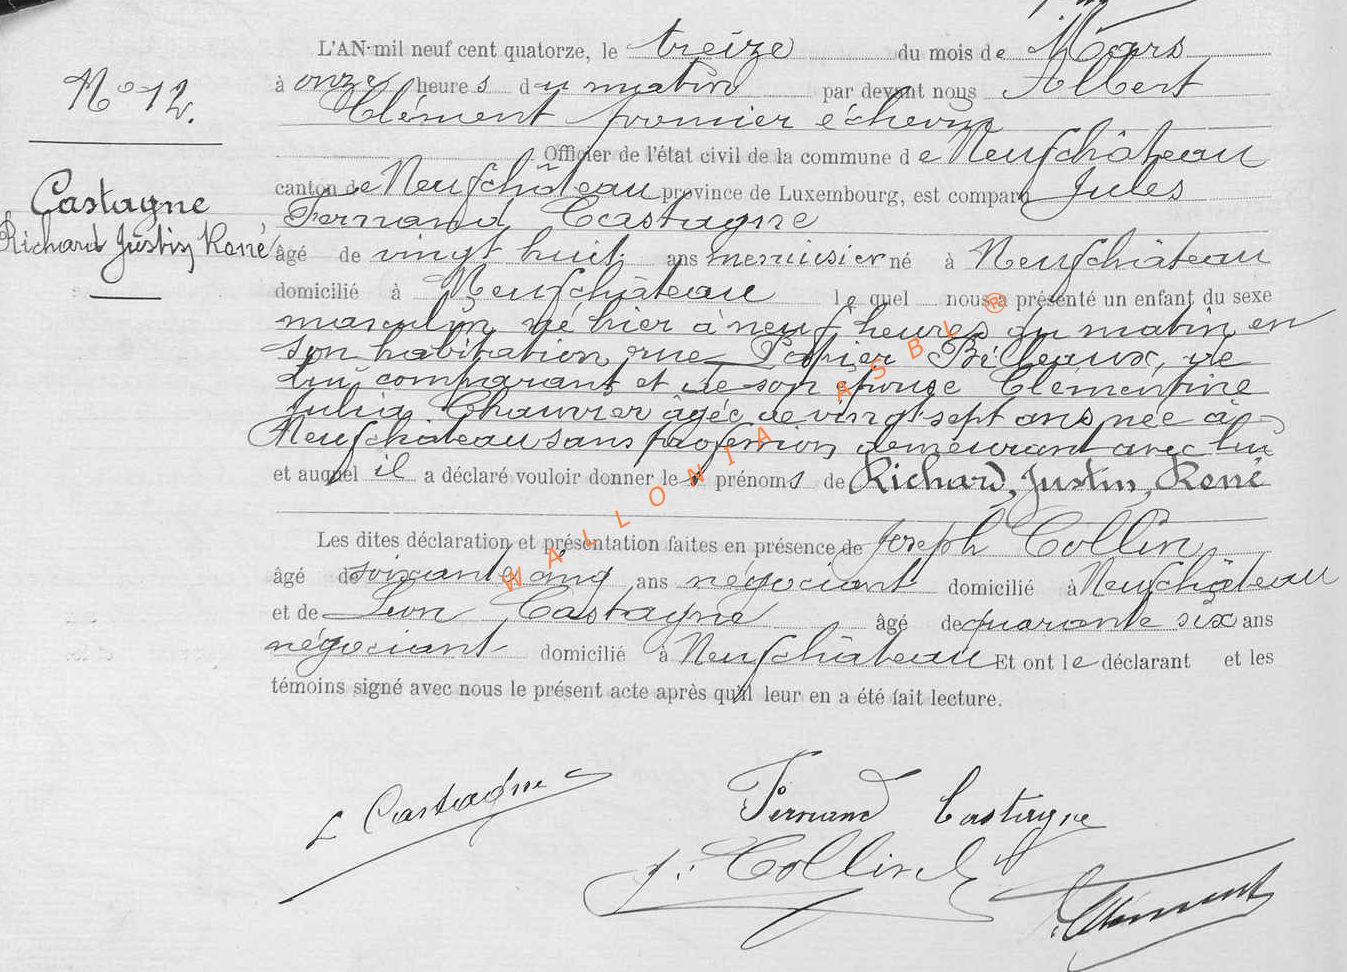 L'AN mil neuf cent quatorze, le treize du mois de Mars
à onze heures du matin par devant nous Albert
Clément premier échevin
Officier de l'état civil de la commune de Neufchâteau
canton de Neufchâteau province de Luxembourg, est comparu Jules
Fernand Castagne
âgé de vingt huit ans menuisier né à Neufchâteau
domicilié à Neufchâteau lequel nous a présenté un enfant du sexe
masculin, né hier à neuf heures du matin en
son habitation, rue Béheaux, de
lui comparant et de son épouse Clémentine
Julia Chauvier âgée de vingt sept ans née à
Neufchâteau sans profession demeurant avec lui
et auquel il a déclaré vouloir donner les prénoms de Richard, Justin, René
Les dites déclaration et présentation faites en présence de Joseph Collin
âgé de soixante cinq ans négociant domicilié à Neufchâteau
et de Léon Castagne âgé de quarante six ans
négociant domicilié à Neufchâteau Et ont le déclarant et les
témoins signé avec nous le présent acte après qu'il leur en a été fait lecture.
N° 12.
Castagne
Richard Justin René
L Castagne
Fernand Castagne
J. Collin
Clément
WALLONIA ASBL ®